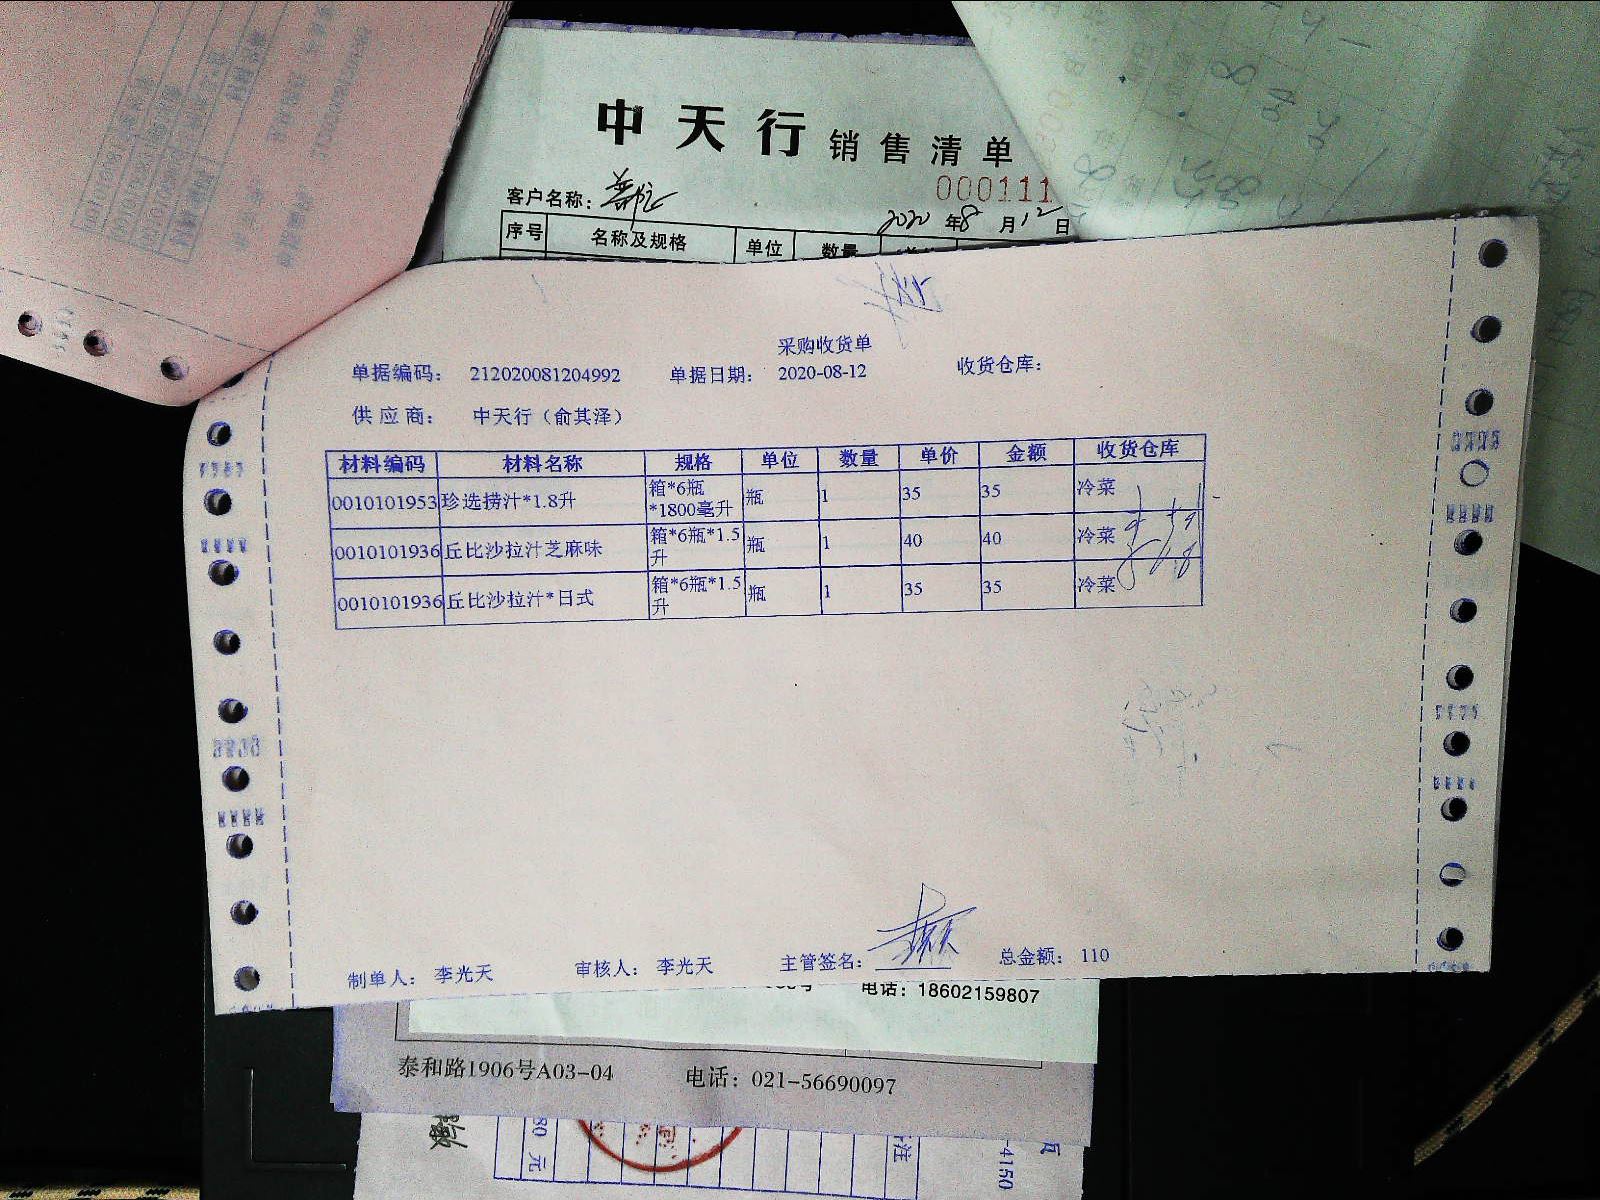 中天行 销售清单
000111
客户名称：
2020 年 8 月 12 日
序号 名称及规格 单位 数量
采购收货单
单据编码： 212020081204992 单据日期： 2020-08-12 收货仓库：
供 应 商： 中天行（俞其泽）
材料编码 材料名称 规格 单位 数量 单价 金额 收货仓库
0010101953 珍选捞汁*1.8升 箱*6瓶*1800毫升 瓶 1 35 35 冷菜
0010101936 丘比沙拉汁芝麻味 箱*6瓶*1.5升 瓶 1 40 40 冷菜
0010101936 丘比沙拉汁*日式 箱*6瓶*1.5升 瓶 1 35 35 冷菜
制单人： 李光天 审核人： 李光天 主管签名： 总金额： 110
电话：18602159807
泰和路1906号A03-04 电话：021-56690097
80 元
-4150